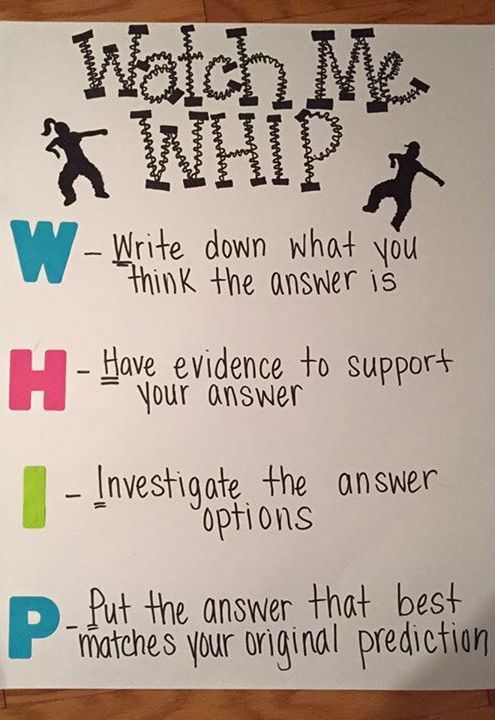 Watch Me
WHIP
W - Write down what you
think the answer is
H - Have evidence to support
your answer
I - Investigate the answer
options
P - Put the answer that best
matches your original prediction